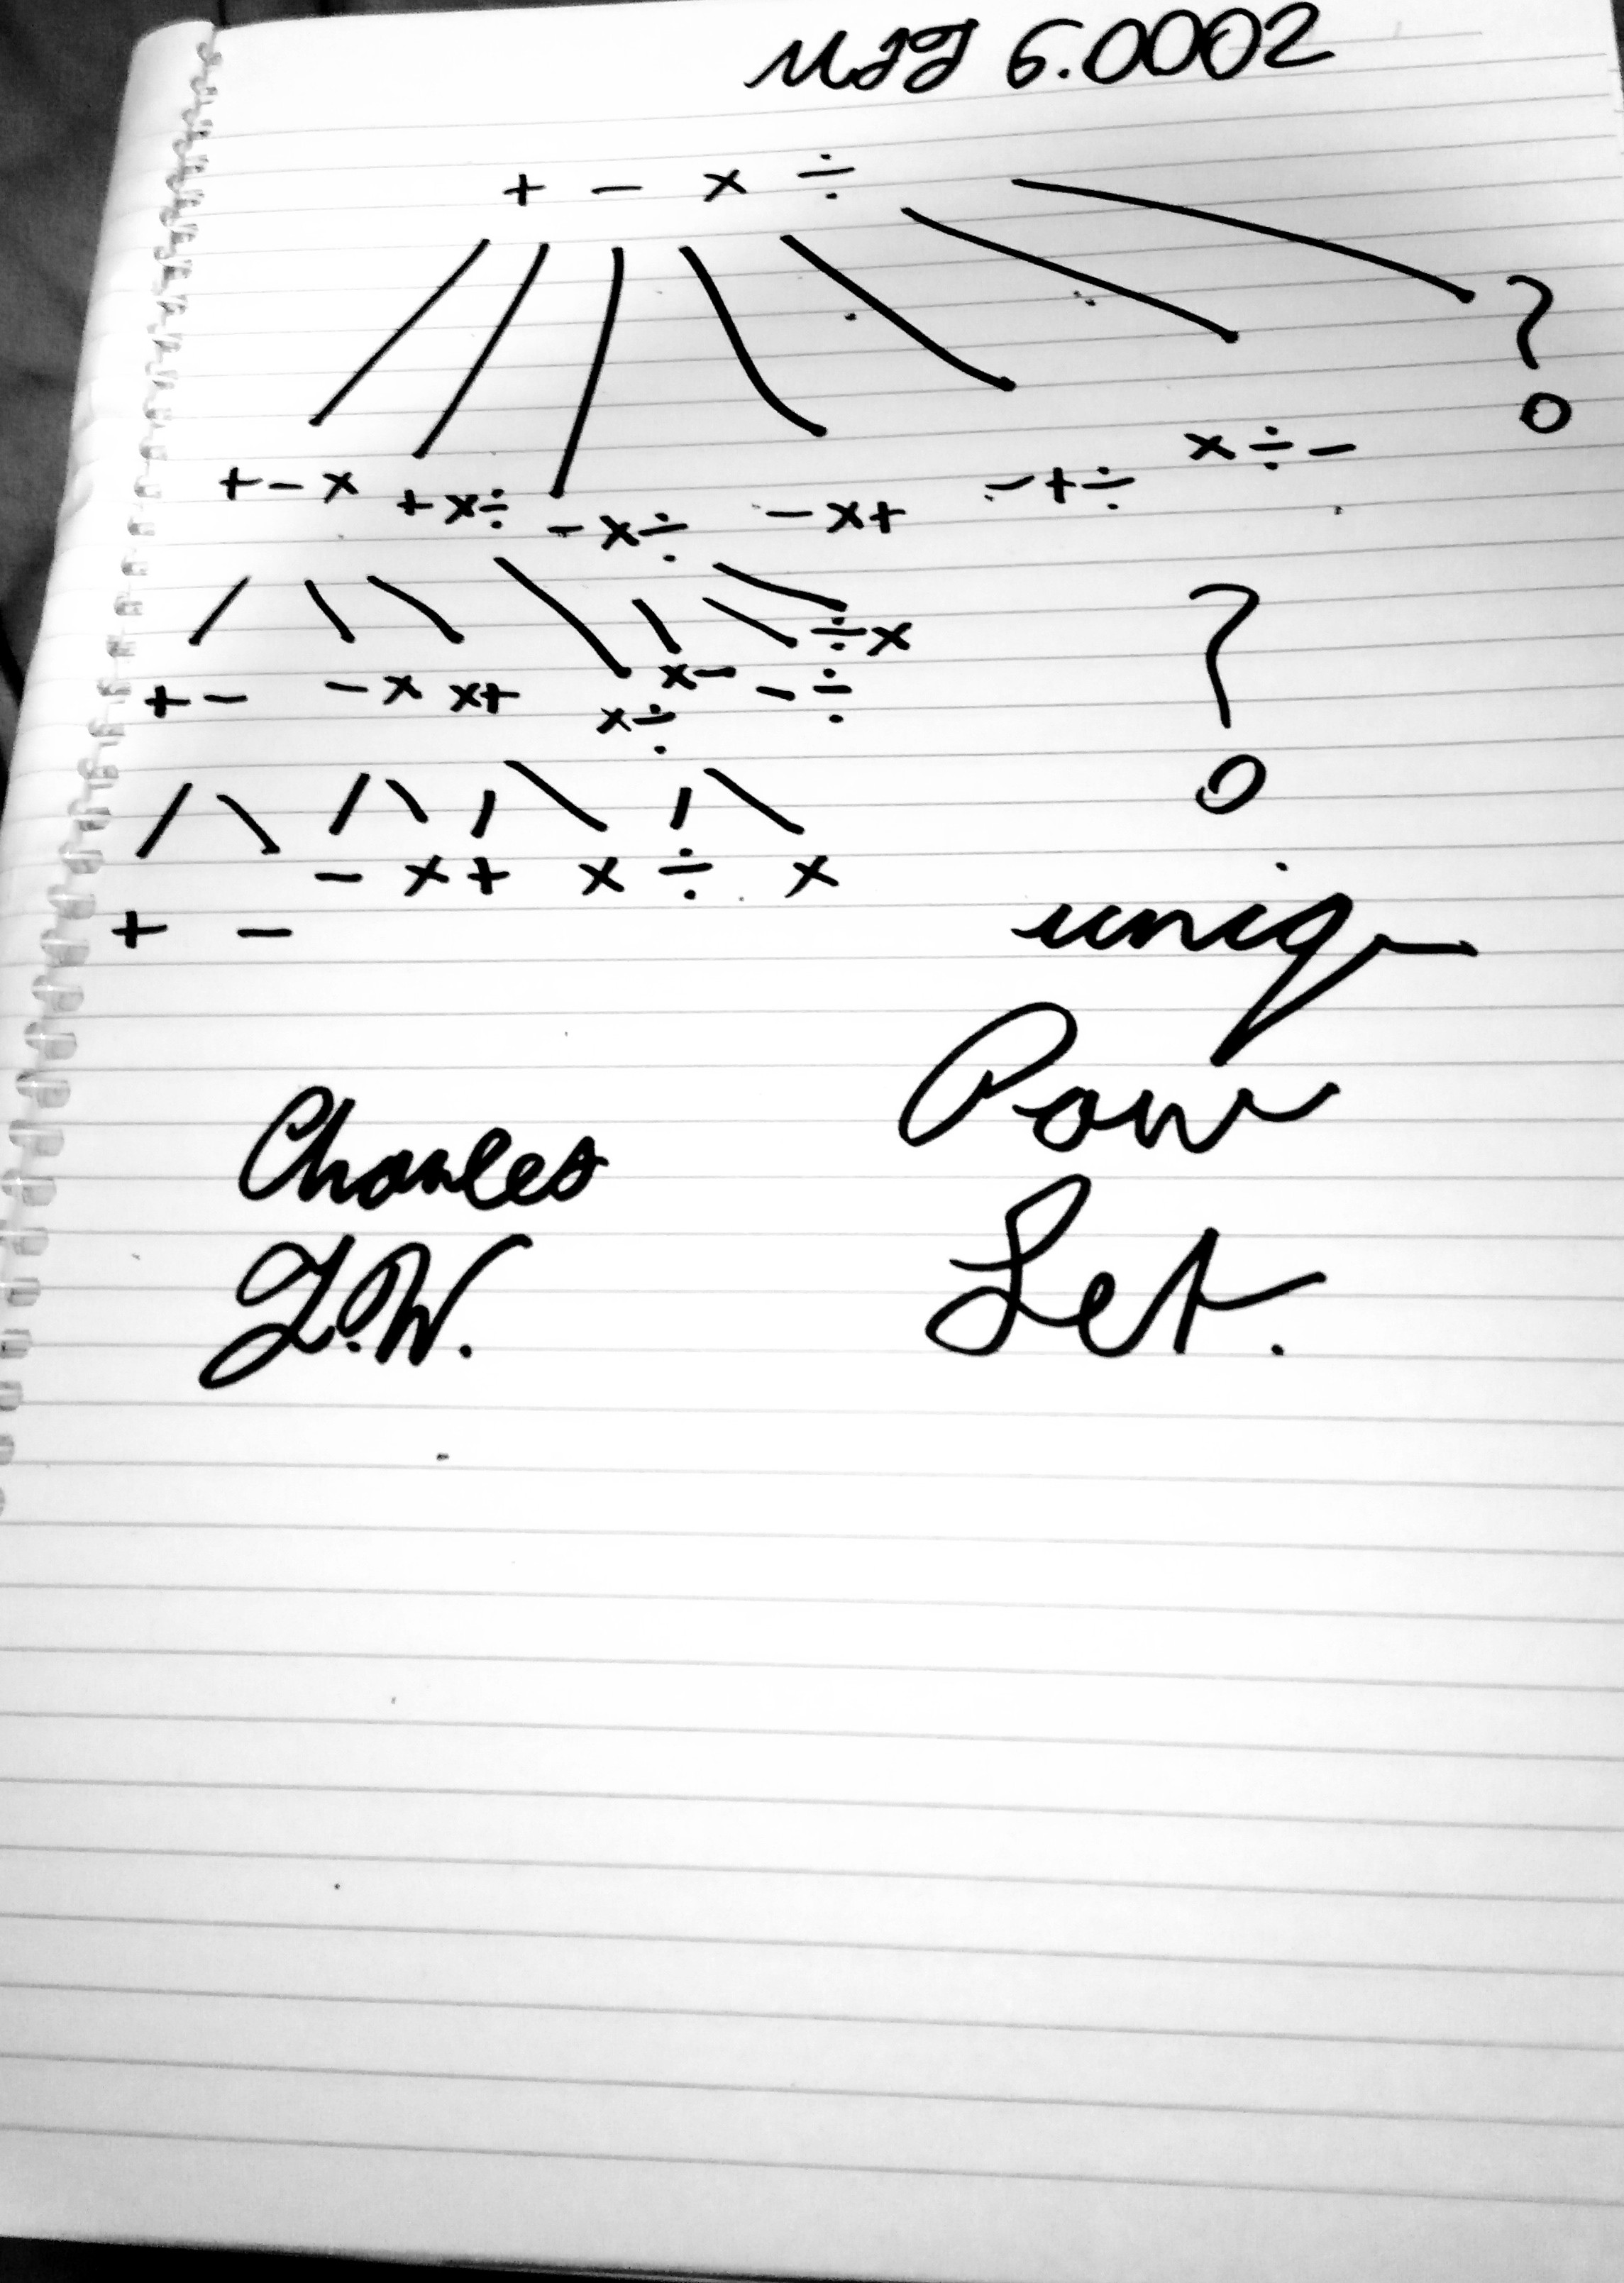 MIT 6.0002
+ - × ÷
?
+-× +×÷ -×÷ -×+ -+÷ ×÷-
+- -× ×+ ×÷ ×- -÷ ÷×
?
- × + × ÷ ×
+ -
uniq
Pow
Set.
Charles
T.W.